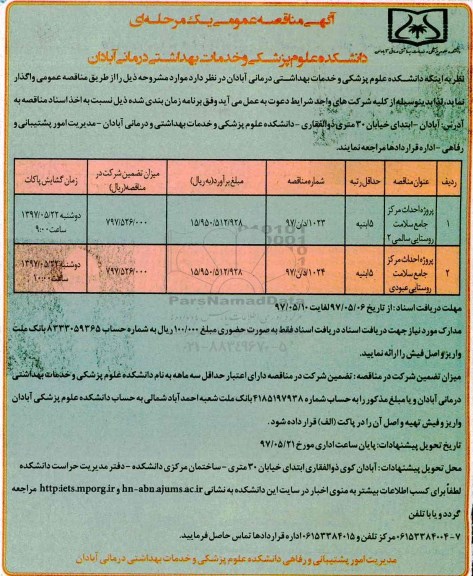 آگهی مناقصه عمومی یک مرحله‌ای
دانشکده علوم پزشکی و خدمات بهداشتی درمانی آبادان
نظر به اینکه دانشکده علوم پزشکی و خدمات بهداشتی درمانی آبادان در نظر دارد موارد مشروحه ذیل را از طریق مناقصه عمومی واگذار
نماید، لذا بدینوسیله از کلیه شرکت های واجد شرایط دعوت به عمل می آید وفق برنامه زمان بندی شده ذیل نسبت به اخذ اسناد مناقصه به
آدرس: آبادان - ابتدای خیابان ۳۰ متری ذوالفقاری - دانشکده علوم پزشکی و خدمات بهداشتی و درمانی آبادان - مدیریت امور پشتیبانی و
رفاهی - اداره قراردادها مراجعه نمایند.
ردیف عنوان مناقصه حداقل رتبه شماره مناقصه مبلغ برآورد (به ریال) میزان تضمین شرکت در مناقصه (ریال) زمان گشایش پاکات
۱ پروژه احداث مرکز جامع سلامت روستایی سالمی ۲ ۵ ابنیه ۱۰۲۳/دان/۹۷ ۱۵/۹۵۰/۵۱۲/۹۲۸ ۷۹۷/۵۲۶/۰۰۰ دوشنبه ۱۳۹۷/۰۵/۲۲ ساعت ۹:۰۰
۲ پروژه احداث مرکز جامع سلامت روستایی عبودی ۵ ابنیه ۱۰۲۴/دان/۹۷ ۱۵/۹۵۰/۵۱۲/۹۲۸ ۷۹۷/۵۲۶/۰۰۰ دوشنبه ۱۳۹۷/۰۵/۲۲ ساعت ۱۰:۰۰
ParsNamadData
۰۲۱-۸۸۳۴۹۶۷۰-۵
مهلت دریافت اسناد: از تاریخ ۹۷/۰۵/۰۶ لغایت ۹۷/۰۵/۱۰
مدارک مورد نیاز جهت دریافت اسناد دریافت اسناد فقط به صورت حضوری مبلغ ۱۰۰/۰۰۰ ریال به شماره حساب ۸۳۳۳۰۵۹۳۶۵ بانک ملت
واریز و اصل فیش را ارائه نمایید.
میزان تضمین شرکت در مناقصه: تضمین شرکت در مناقصه دارای اعتبار حداقل سه ماهه به نام دانشکده علوم پزشکی و خدمات بهداشتی
درمانی آبادان و یا مبلغ مذکور را به حساب شماره ۴۱۸۵۱۹۷۹۳۸ بانک ملت شعبه احمد آباد شمالی به حساب دانشکده علوم پزشکی آبادان
واریز و فیش تهیه و اصل آن را در پاکت (الف) قرار داده شود.
تاریخ تحویل پیشنهادات: پایان ساعت اداری مورخ ۹۷/۰۵/۲۱
محل تحویل پیشنهادات: آبادان کوی ذوالفقاری ابتدای خیابان ۳۰ متری - ساختمان مرکزی دانشکده - دفتر مدیریت حراست دانشکده
لطفاً برای کسب اطلاعات بیشتر به منوی اخبار در سایت این دانشکده به نشانی hn-abn.ajums.ac.ir و http:iets.mporg.ir مراجعه
گردد و یا با تلفن
۷-۰۶۱۵۳۳۸۴۰۰۴ مرکز تلفن و ۰۶۱۵۳۳۸۴۰۱۵ اداره قراردادها تماس حاصل فرمایید.
مدیریت امور پشتیبانی و رفاهی دانشکده علوم پزشکی و خدمات بهداشتی درمانی آبادان